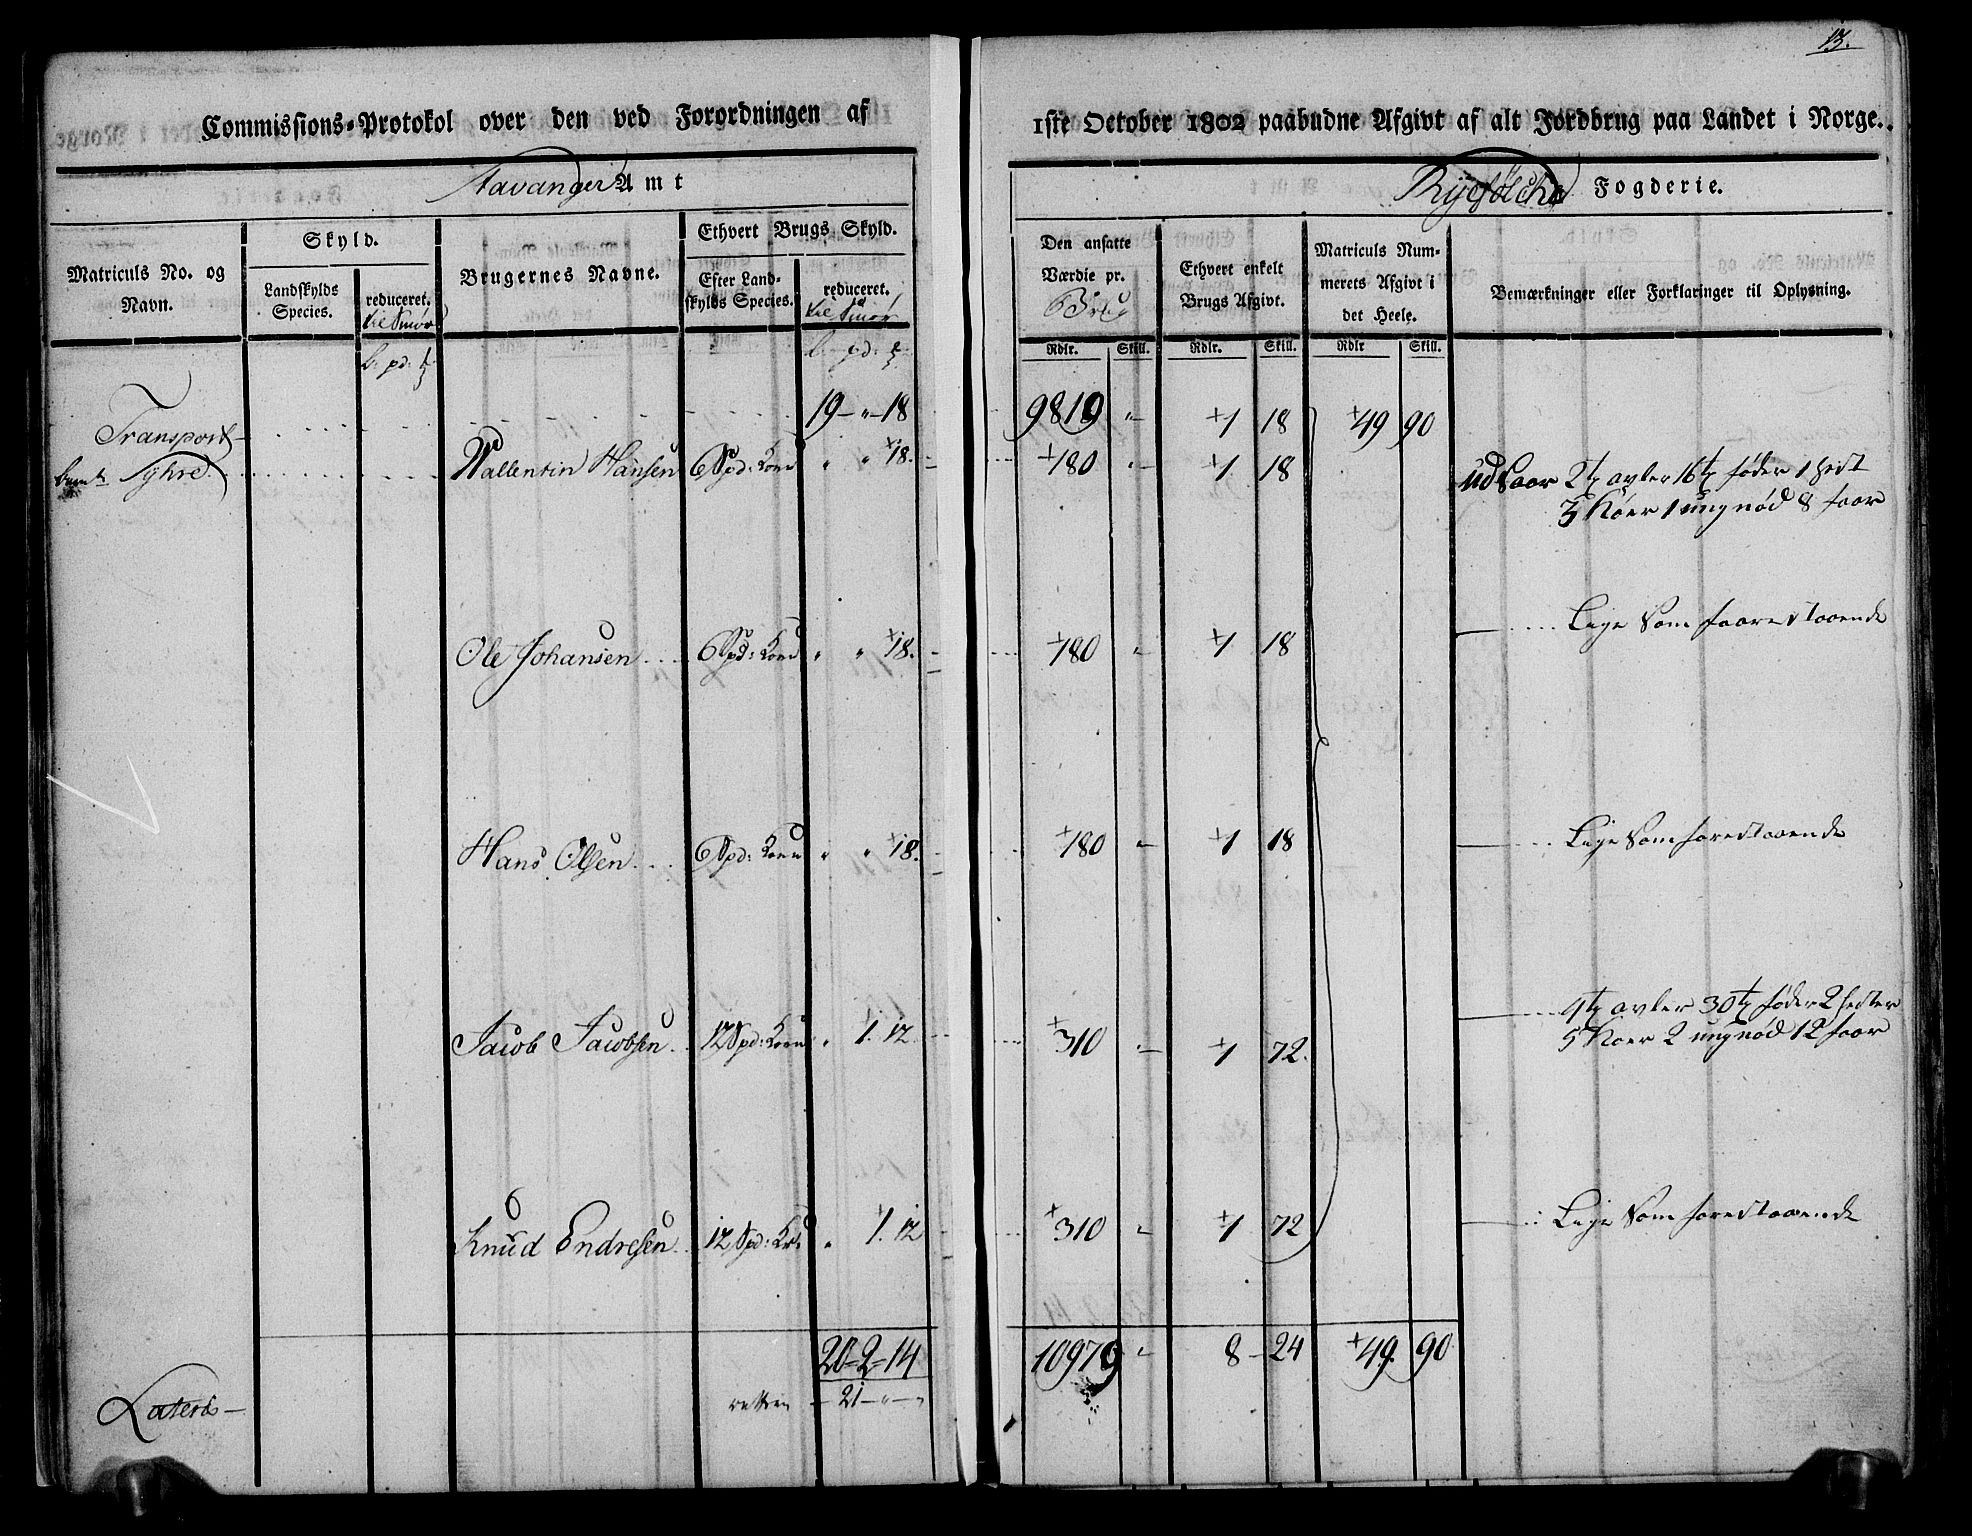 13.
Commissions-Protokol over den ved Forordningen af 1ste October 1802 paabudne Afgivt af alt Jordbrug paa Landet i Norge.
Stavanger Amt
Ryefølche Fogderie.
Matriculs No. og Navn.
Skyld.
Landskylds Species.
reduceret. til Smør
Brugernes Navne.
Ethvert Brugs Skyld.
Efter Landskylds Species.
reduceret. til Smør
Den ansatte Værdie pr. Brug
Ethvert enkelt Brugs Afgivt.
Matriculs Nummerets Afgivt i det Heele.
Bemærkninger eller Forklaringer til Oplysning.
b. pd:
b. pd:
Rdlr. Skill. Rdlr. Skill. Rdlr Skill.
Transport 19 - " - 18 9819 " +1 18 +49 90
Sghre Wallentin Hansen 6 Spd: Korn " " +18. +180 " +1 18 Udsaar 2 tr avler 16 tr føder 1 hest
3 Køer 1 ungnød 8 faar
Ole Johansen 6 Spd: Korn " " +18. +180 " +1 18 Lige som faarestaaende
Hans Olsen 6 Spd: Korn " " +18. +180 " +1 18 Lige som forestaaende
Jacob Jacobsen 12 Spd: Korn " 1. 12. +310 " +1 72. 4 tr avler 30 tr føder 2 hester
5 Køer 2 ungnød 12 faar
Knud Endresen 12 Spd: Kor " 1. 12 +310 " +1 72 Lige som forestaaende
20 - 2 - 14 10979 " 8 - 24 +49. 90
Lateris rettere - 21 - " - "